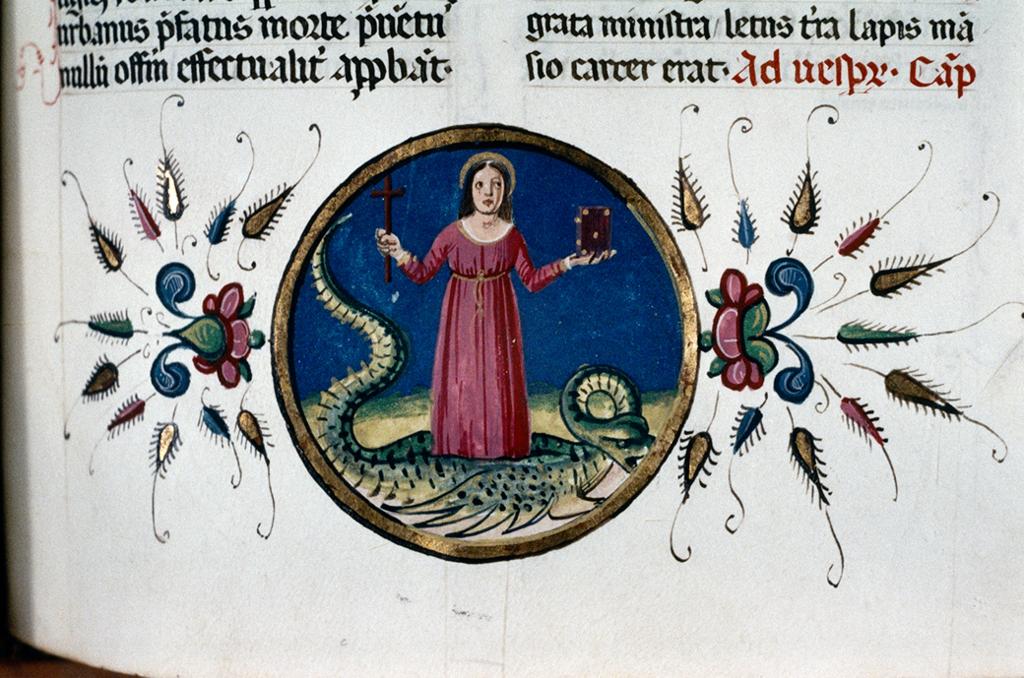 urbanus p̄fatus morte p̄uētu
nullū offm̄ effectualit̄ apꝓbāt·
grata ministra / letus t̄ra lapis mā
sio carcer erat· Ad uesp̄r· Cāp